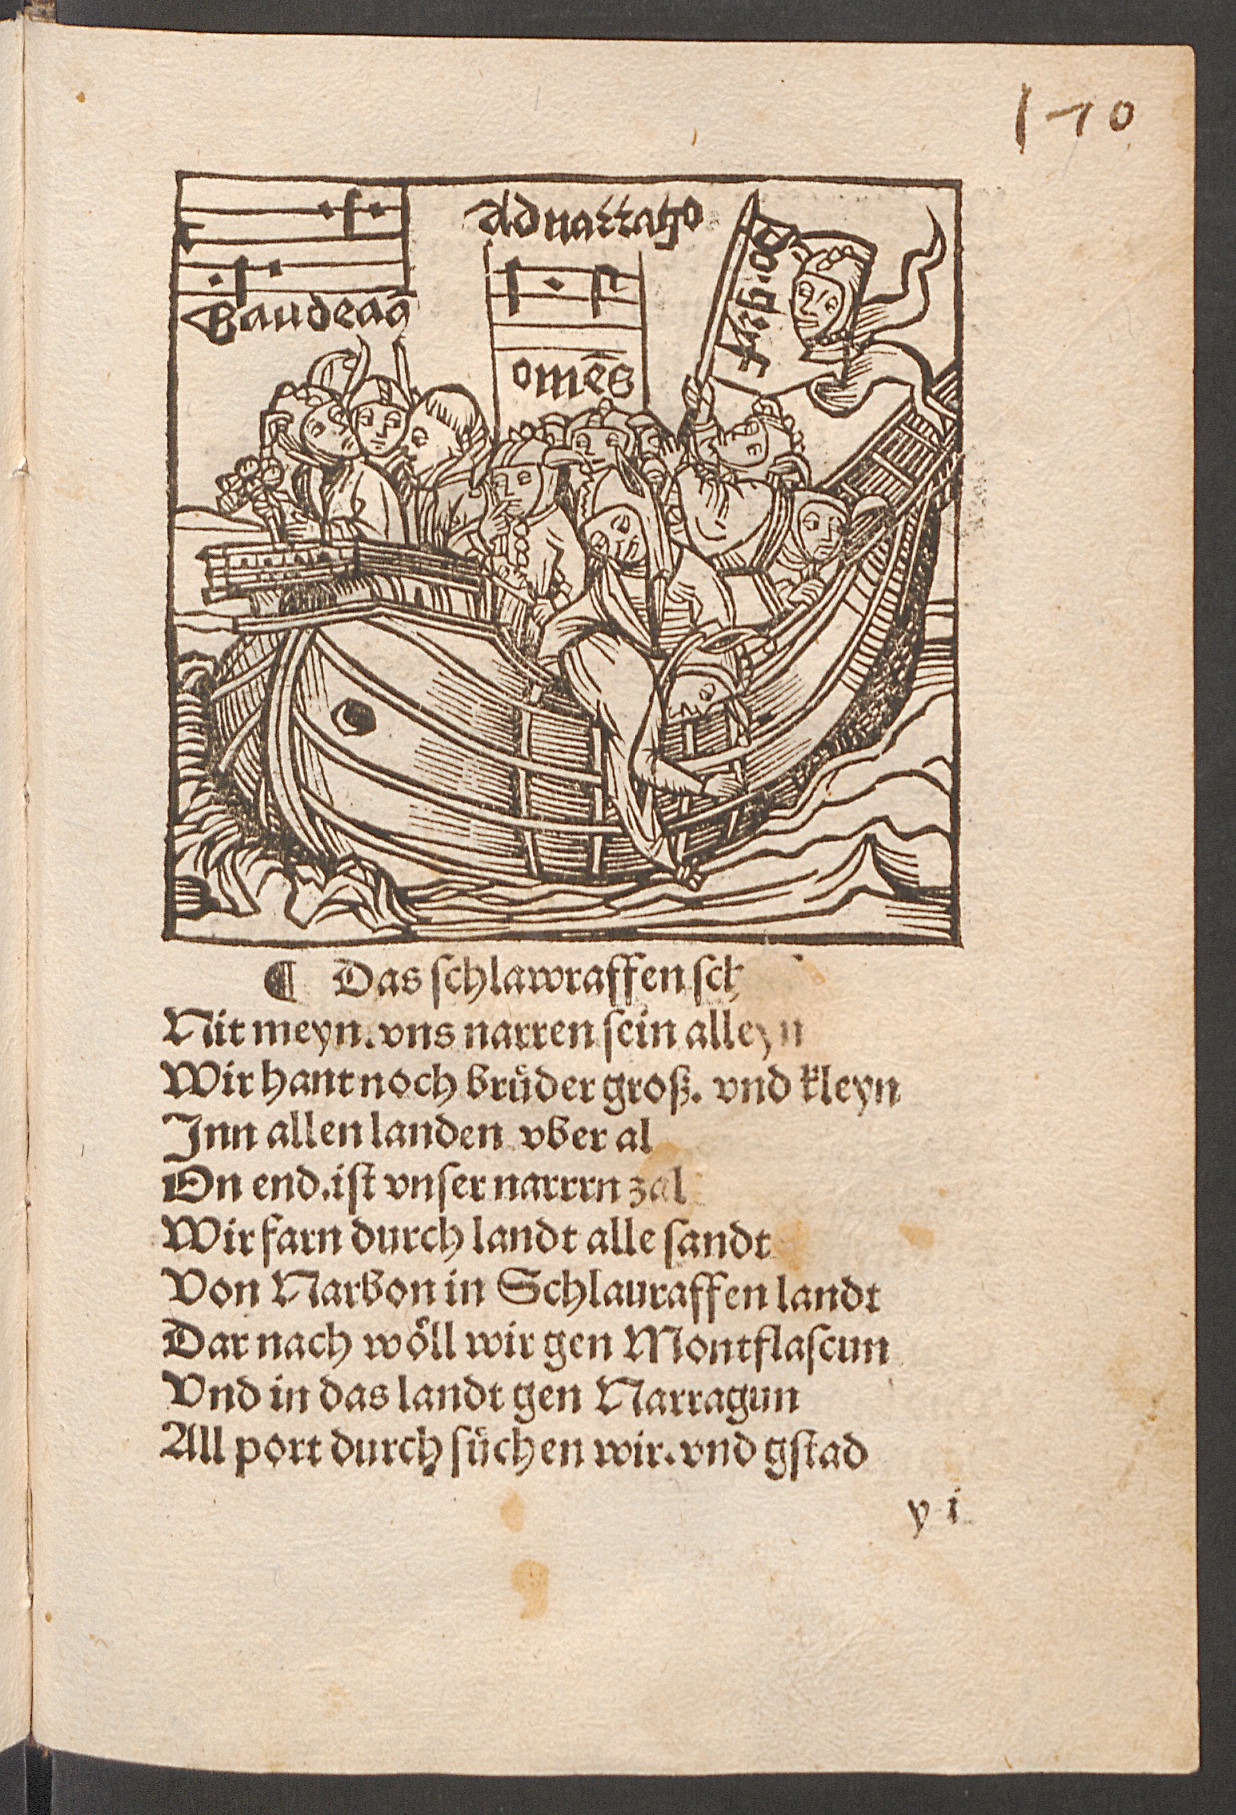 170
Gaudeaꝰ
ad narragō
omēs
¶ Das schlawraffen sch
Nit meyn. vns narren sein alleyn
Wir hant noch brůder groß. vnd kleyn
Inn allen landen vber al
On end. ist vnser narrrn zal
Wir farn durch landt alle sandt
Von Narbon in Schlauraffen landt
Dar nach wöll wir gen Montflascun
Vnd in das landt gen Narragun
All port durch sůchen wir. vnd gstad
y i